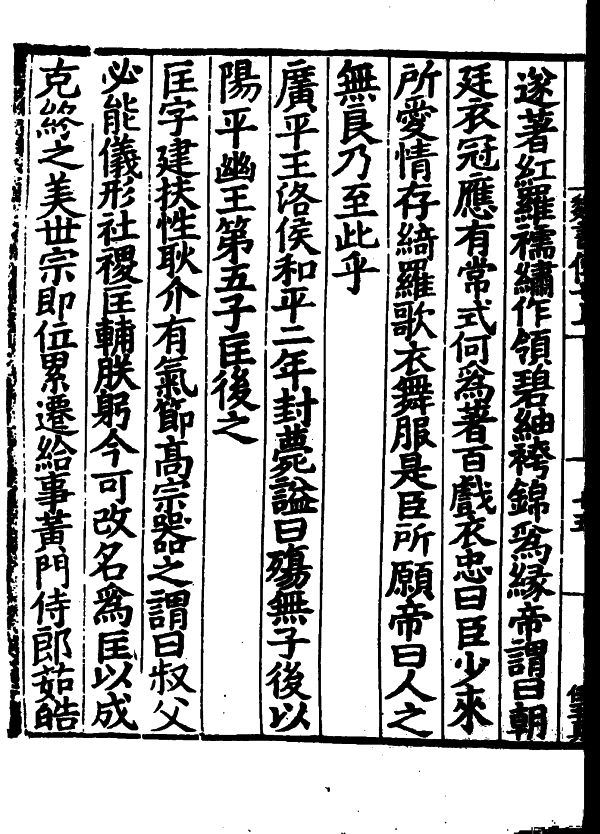 遂著紅羅襦繡作領碧紬袴錦爲緣帝謂曰朝
廷衣冠應有常式何爲著百戲衣忠曰臣少來
所愛情存綺羅歌衣舞服是臣所願帝曰人之
無良乃至此乎
廣平王洛侯和平二年封薨謚曰殤無子後以
陽平幽王第五子匡後之
匡字建扶性耿介有氣節高宗器之謂曰叔父
必能儀形社稷匡輔朕躬今可改名爲匡以成
克終之美世宗即位累遷給事黃門侍郎茹皓